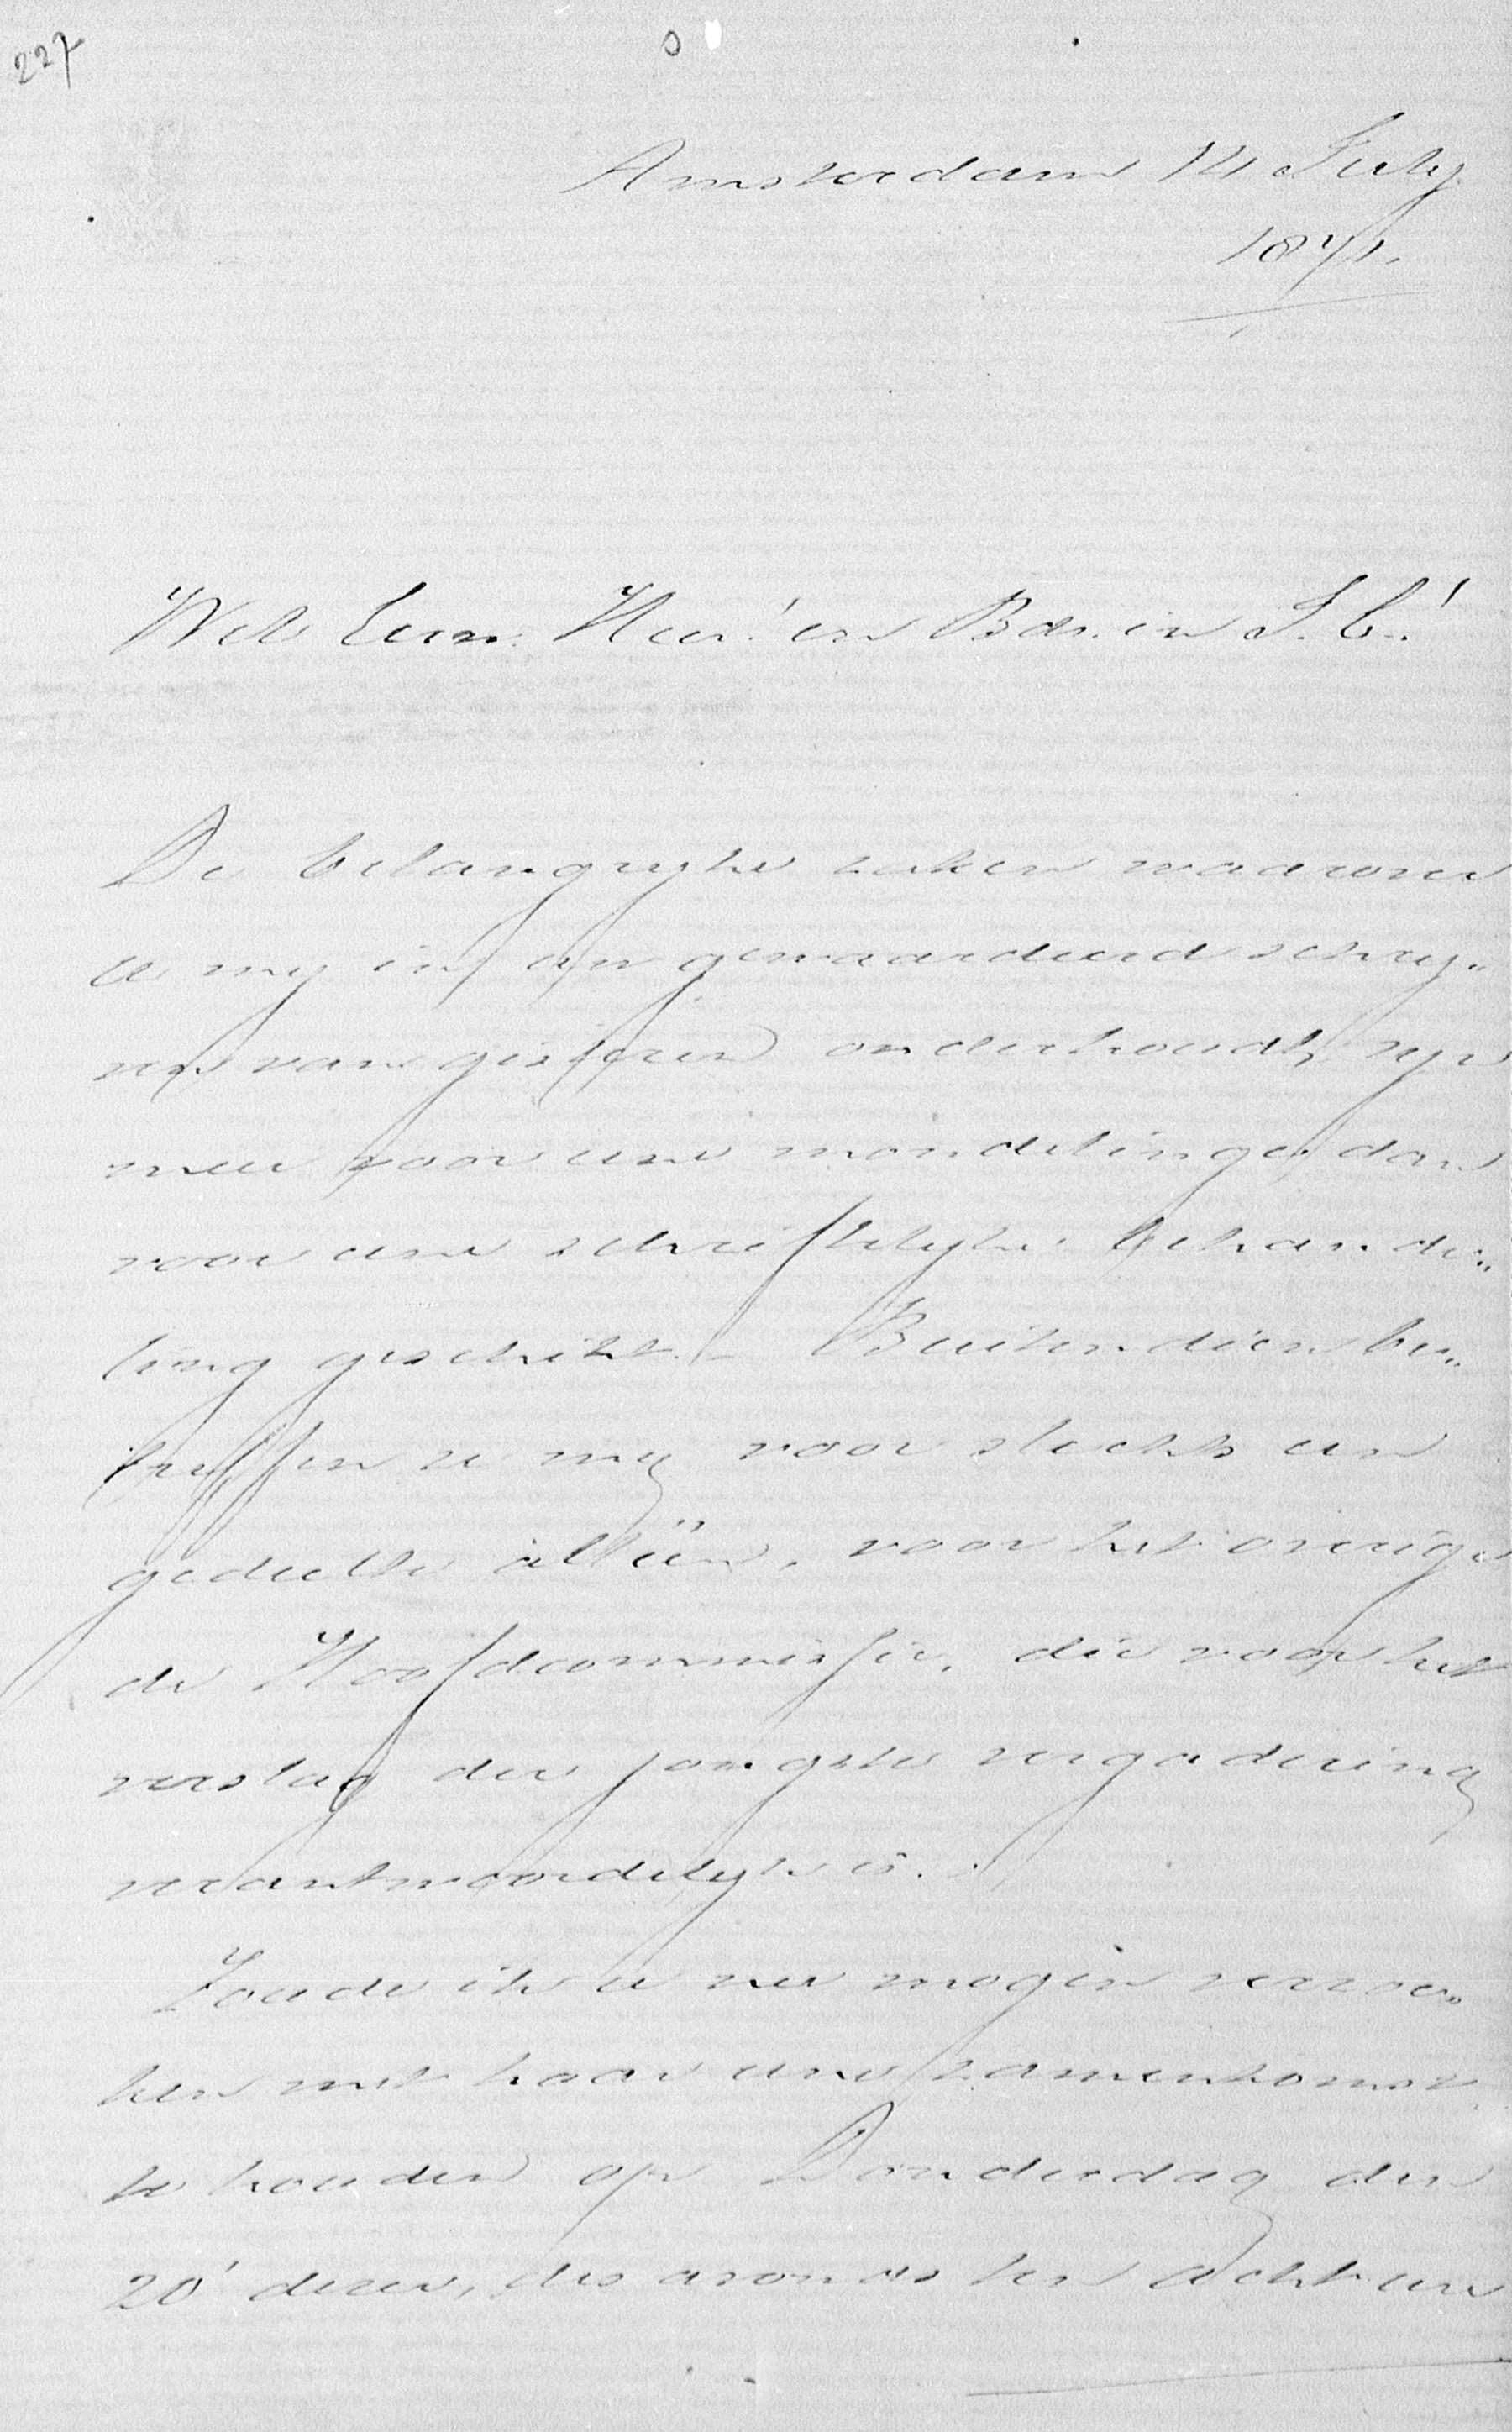 227
Amsterdam 14 July
1871.
Wel Eerw. Heer! en Bdr. in J. C.!
De belangryke zaken waarover
u my in uw gewaardeerd schry„
ven van gisteren onderhoudt, zyn
meer voor eene mondelinge, dan
voor eene schriftelyke behande„
ling geschikt. – Buitendien be„
treffen ze my voor slechts een
gedeelte alléén, voor het overige
de Hoofdcommissie, die voor het
verslag der jongste vergadering
verantwoordelyk is.
Zoude ik u nu mogen verzoe„
ken met haar eene zamenkomst
te houden op Donderdag den
20' dezer, des avonds ten acht ure